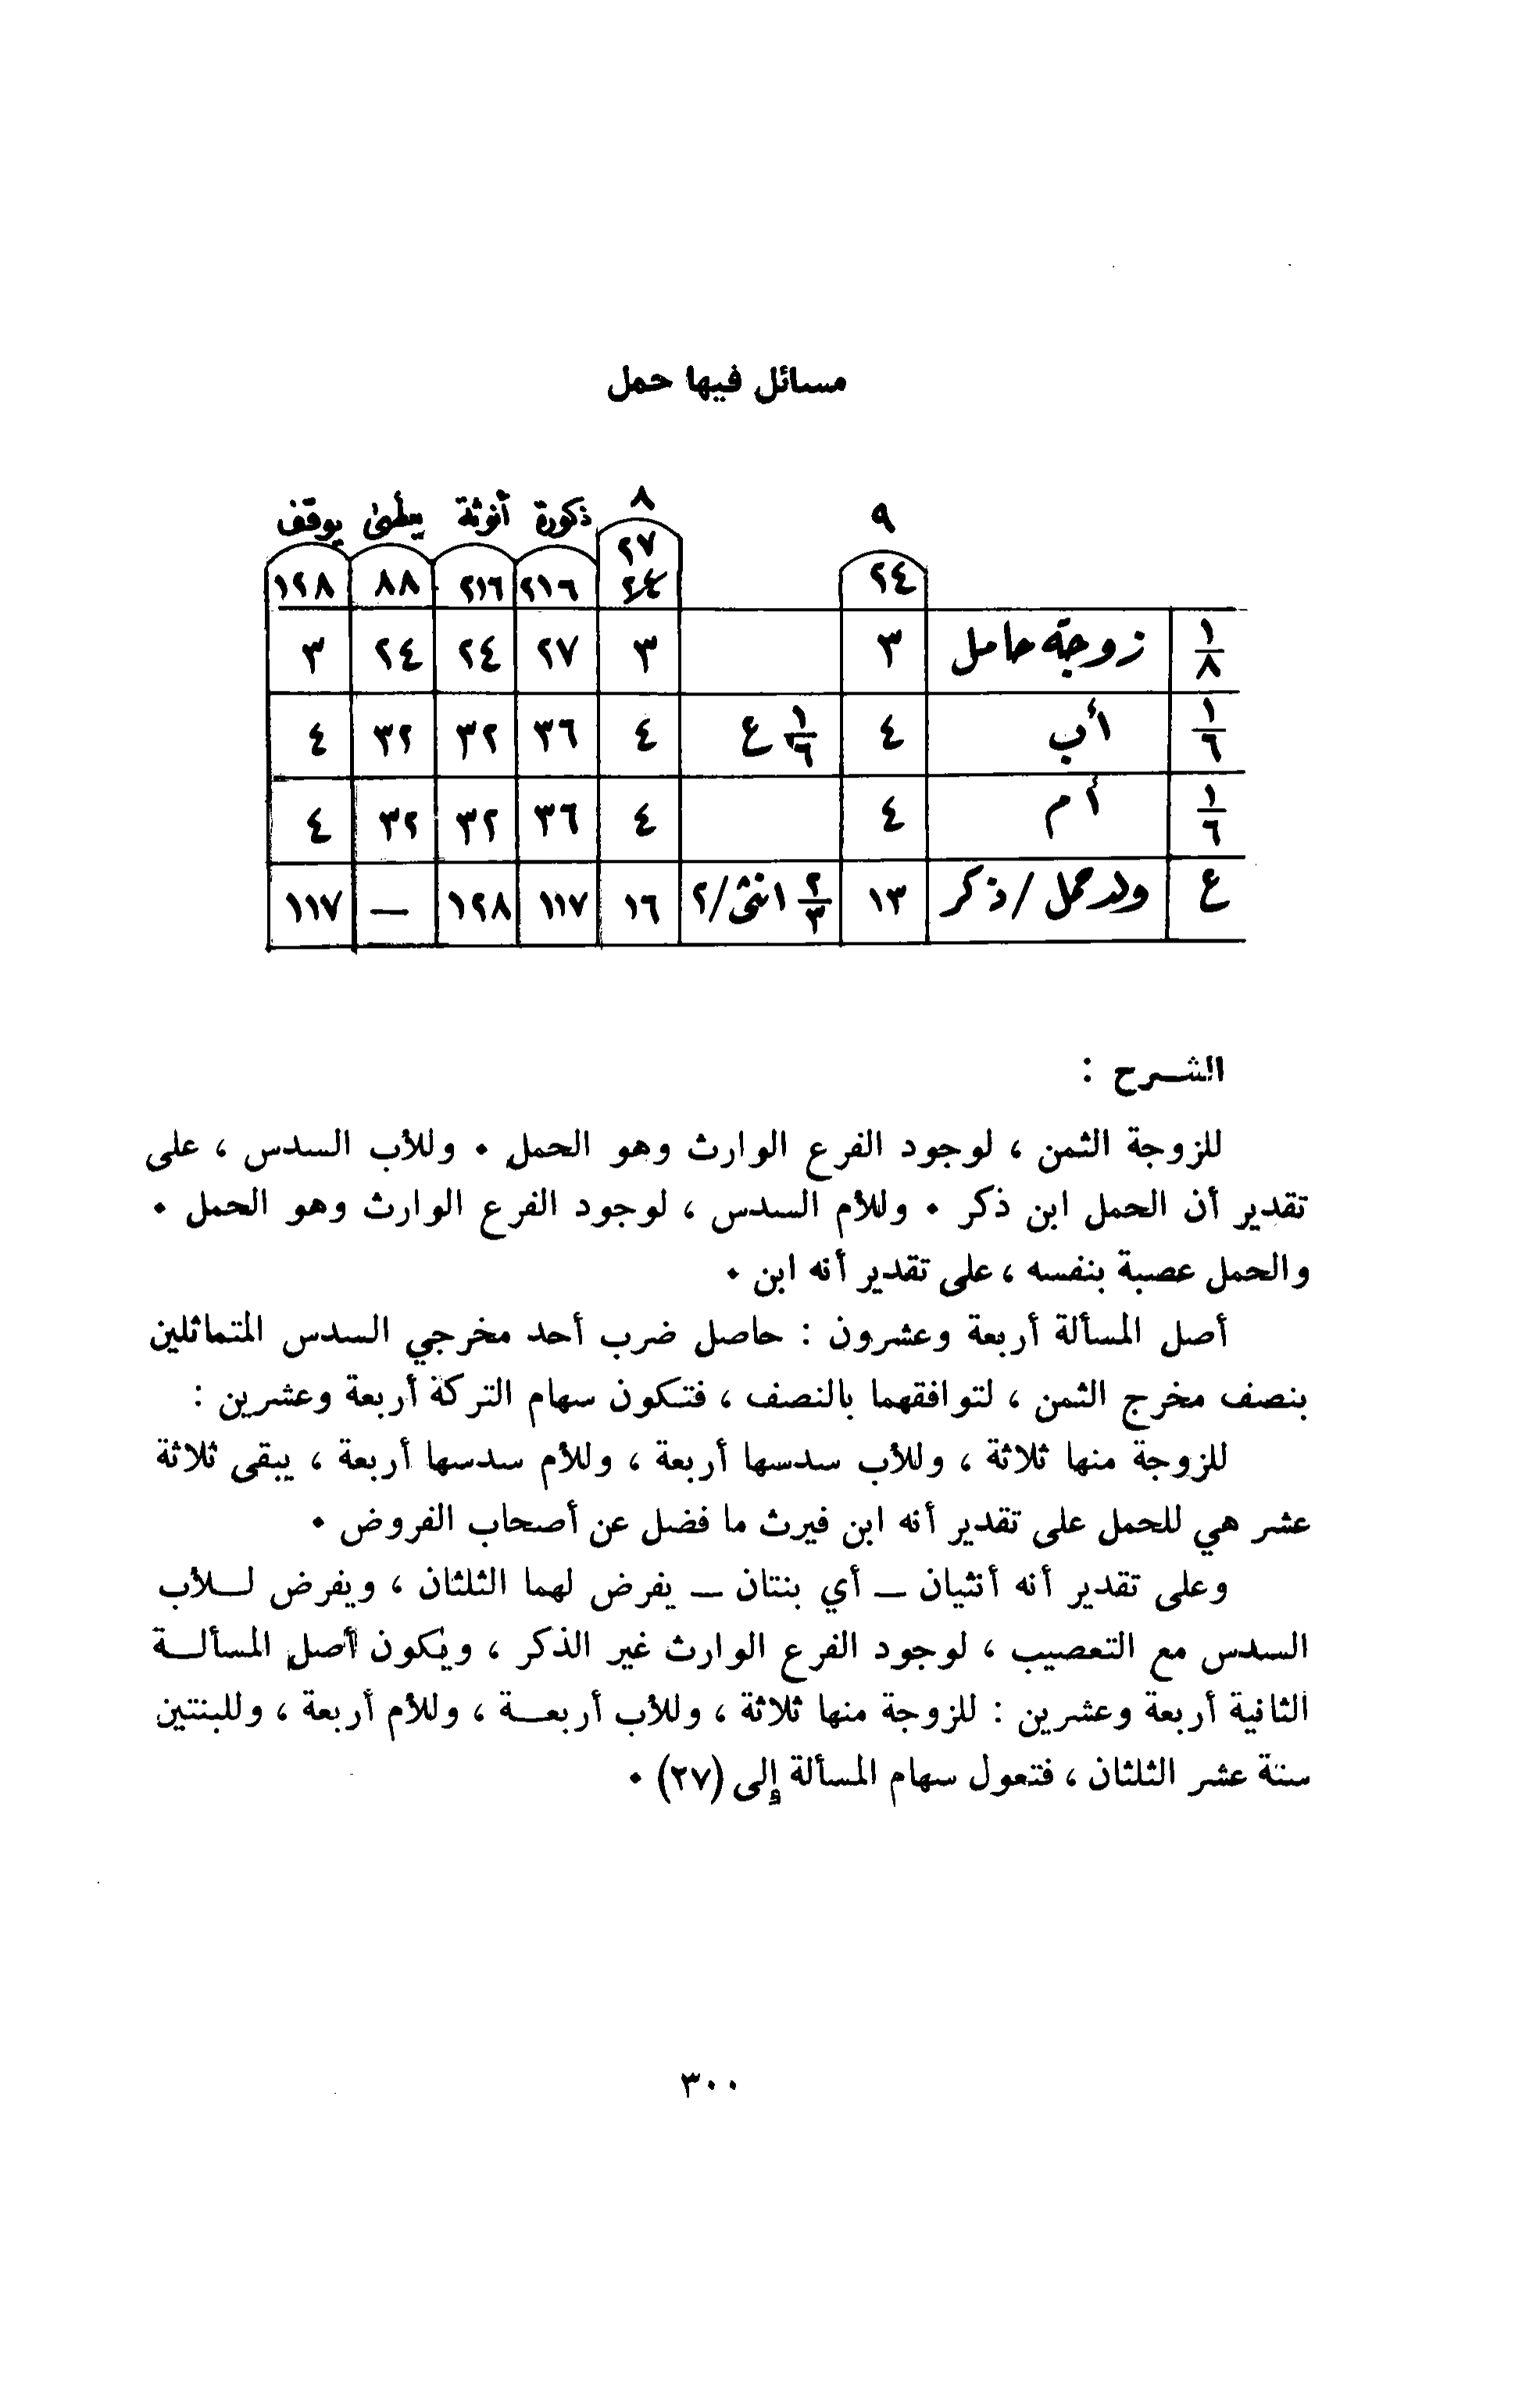 مسائل فيها حمل
٩ ٨ ذكورة أنوثة يعطى يوقف
٢٤ ٢٧ ٢٤ ٢١٦ ٢١٦ ٨٨ ١٢٨
١/٨ زوجة حامل ٣ ٣ ٢٧ ٢٤ ٢٤ ٣
١/٦ أب ٤ ١/٦ ع ٤ ٣٦ ٣٢ ٣٢ ٤
١/٦ أم ٤ ٤ ٣٦ ٣٢ ٣٢ ٤
ع ولد حمل / ذكر ١٣ ٢/٣ انثى/٢ ١٦ ١١٧ ١٢٨ — ١١٧
الشـرح :
للزوجة الثمن ، لوجود الفرع الوارث وهو الحمل ٠ وللأب السدس ، على
تقدير أن الحمل ابن ذكر ٠ وللأم السدس ، لوجود الفرع الوارث وهو الحمل ٠
والحمل عصبة بنفسه ، على تقدير أنه ابن ٠
أصل المسألة أربعة وعشرون : حاصل ضرب أحد مخرجي السدس المتماثلين
بنصف مخرج الثمن ، لتوافقهما بالنصف ، فتكون سهام التركة أربعة وعشرين :
للزوجة منها ثلاثة ، وللأب سدسها أربعة ، وللأم سدسها أربعة ، يبقى ثلاثة
عشر هي للحمل على تقدير أنه ابن فيرث ما فضل عن أصحاب الفروض ٠
وعلى تقدير أنه أنثيان ــ أي بنتان ــ يفرض لهما الثلثان ، ويفرض لــلأب
السدس مع التعصيب ، لوجود الفرع الوارث غير الذكر ، ويكون أصل المسألــة
الثانية أربعة وعشرين : للزوجة منها ثلاثة ، وللأب أربعــة ، وللأم أربعة ، وللبنتين
ستة عشر الثلثان ، فتعول سهام المسألة إلى (٢٧) ٠
٣٠٠